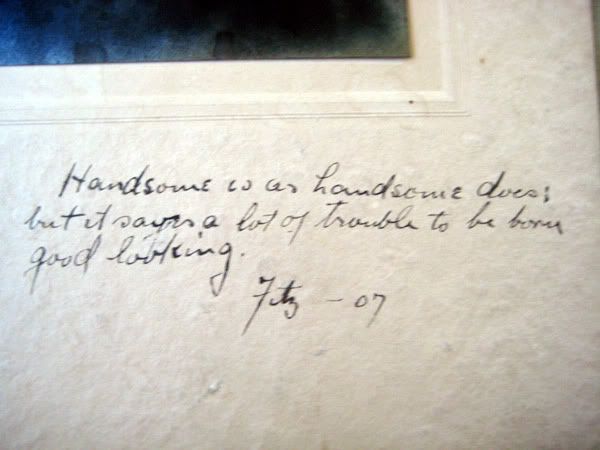 Handsome is as handsome does;
but it saves a lot of trouble to be born
good looking.
Fitz - 07